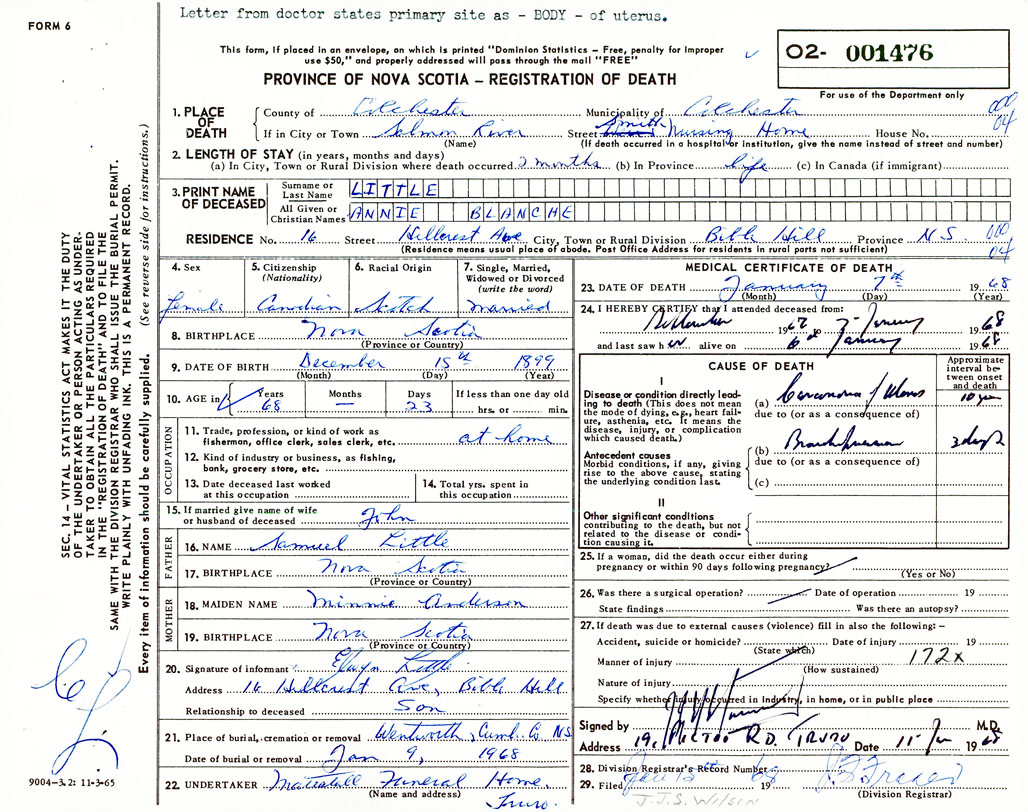 Letter from doctor states primary site as - BODY - of uterus.
FORM 6
This form, if placed in an envelope, on which is printed "Dominion Statistics – Free, penalty for improper
use $50," and properly addressed will pass through the mail "FREE"
O2- 001476
For use of the Department only
PROVINCE OF NOVA SCOTIA – REGISTRATION OF DEATH
SEC. 14 – VITAL STATISTICS ACT MAKES IT THE DUTY
OF THE UNDERTAKER OR PERSON ACTING AS UNDER-
TAKER TO OBTAIN ALL THE PARTICULARS REQUIRED
IN THE "REGISTRATION OF DEATH" AND TO FILE THE
SAME WITH THE DIVISION REGISTRAR WHO SHALL ISSUE THE BURIAL PERMIT.
WRITE PLAINLY WITH UNFADING INK. THIS IS A PERMANENT RECORD.
Every item of information should be carefully supplied. (See reverse side for instructions.)
1. PLACE OF DEATH
County of Colchester Municipality of Colchester
000 04
If in City or Town Salmon River Street Smith Nursing Home House No.
(Name) (If death occurred in a hospital or institution, give the name instead of street and number)
2. LENGTH OF STAY (in years, months and days)
(a) In City, Town or Rural Division where death occurred 2 months (b) In Province life (c) In Canada (if immigrant)
3. PRINT NAME OF DECEASED
Surname or Last Name LITTLE
All Given or Christian Names ANNIE BLANCHE
RESIDENCE No. 16 Street Hillcrest Ave City, Town or Rural Division Bible Hill Province N.S. 000 04
(Residence means usual place of abode. Post Office Address for residents in rural parts not sufficient)
4. Sex
female
5. Citizenship (Nationality)
Canadian
6. Racial Origin
Scotch
7. Single, Married, Widowed or Divorced (write the word)
married
8. BIRTHPLACE Nova Scotia
(Province or Country)
9. DATE OF BIRTH December 15th 1899
(Month) (Day) (Year)
10. AGE in Years 68 Months – Days 23 If less than one day old hrs. or min.
OCCUPATION
11. Trade, profession, or kind of work as
fisherman, office clerk, sales clerk, etc. at home
12. Kind of industry or business, as fishing,
bank, grocery store, etc.
13. Date deceased last worked
at this occupation
14. Total yrs. spent in
this occupation
15. If married give name of wife
or husband of deceased John
FATHER
16. NAME Samuel Little
17. BIRTHPLACE Nova Scotia
(Province or Country)
MOTHER
18. MAIDEN NAME Minnie Anderson
19. BIRTHPLACE Nova Scotia
(Province or Country)
20. Signature of informant Little
Address 16 Hillcrest Ave, Bible Hill
Relationship to deceased Son
21. Place of burial, cremation or removal Wentworth, Cumb. Co NS
Date of burial or removal Jan 9, 1968
22. UNDERTAKER Mattatall Funeral Home,
(Name and address) Truro.
9004-3.2: 11-3-65
MEDICAL CERTIFICATE OF DEATH
23. DATE OF DEATH January 7th 1968
(Month) (Day) (Year)
24. I HEREBY CERTIFY that I attended deceased from:
1967 to January 1968
and last saw her alive on 6th January 1968
CAUSE OF DEATH
Approximate interval between onset and death
I
Disease or condition directly lead-
ing to death (This does not mean
the mode of dying, e.g., heart fail-
ure, asthenia, etc. It means the
disease, injury, or complication
which caused death.)
(a) Carcinoma of Uterus
due to (or as a consequence of)
(b) Bronchopneumonia 3 days
due to (or as a consequence of)
(c)
Antecedent causes
Morbid conditions, if any, giving
rise to the above cause, stating
the underlying condition last.
II
Other significant conditions
contributing to the death, but not
related to the disease or condi-
tion causing it.
25. If a woman, did the death occur either during
pregnancy or within 90 days following pregnancy?
(Yes or No)
26. Was there a surgical operation? Date of operation 19
State findings Was there an autopsy?
27. If death was due to external causes (violence) fill in also the following:-
Accident, suicide or homicide? Date of injury 19
(State which)
Manner of injury 172x
(How sustained)
Nature of injury
Specify whether injury occurred in industry, in home, or in public place
Signed by M.D.
Address PICTOU RD. TRURO Date 11 Jan 1968
28. Division Registrar's Record Number
29. Filed Jan 19 68
(Division Registrar)
J.J.S. Wilson